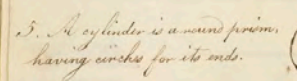 5. A cylinder is a round prism,
having circles for its ends.